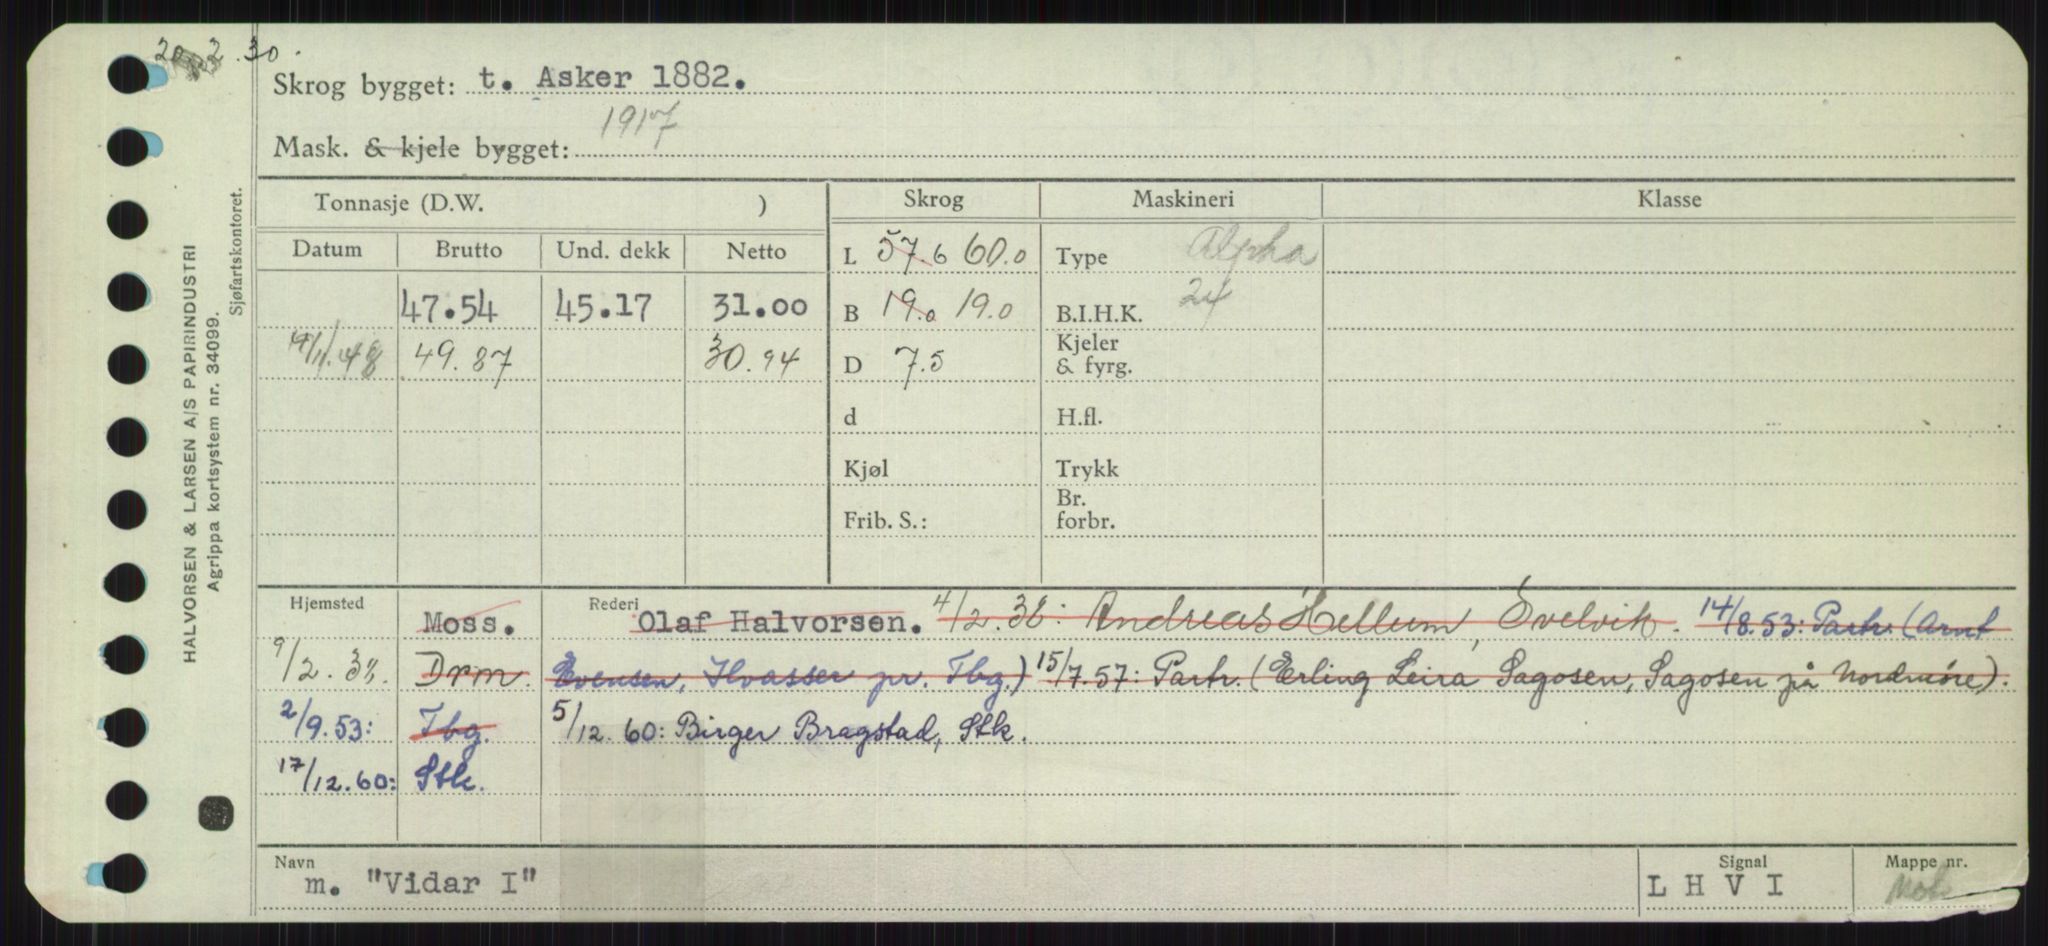 20/2.30.
Skrog bygget: t. Asker 1882.
Mask. & kjele bygget: 1917
Tonnasje (D.W. ) Skrog Maskineri Klasse
Datum Brutto Und. dekk Netto
L 57.6 60.0 Type Alpha
47.54 45.17 31.00 B 19.0 19.0 B.I.H.K. 24
49.87 30.94 D 7.5 Kjeler & fyrg.
d H.fl.
Kjøl Trykk
Frib. S.: Br. forbr.
Hjemsted Moss. Rederi Olaf Halvorsen. Andreas Hellum, Svelvik. 14/8.53: Partr. (Arnt
Drm. Evensen, Hvasser pr. Tbg.) 15/7.57: Partr. (Erling Leira Sagosen, Sagosen på Nordmøre).
2/9.53: Tbg. 5/12.60: Birger Bragstad, Stk.
17/12.60: Stk.
Navn Signal Mappe nr.
m. "Vidar I" L H V I
HALVORSEN & LARSEN A/S PAPIRINDUSTRI
Agrippa kortsystem nr. 34099.
Sjøfartskontoret.